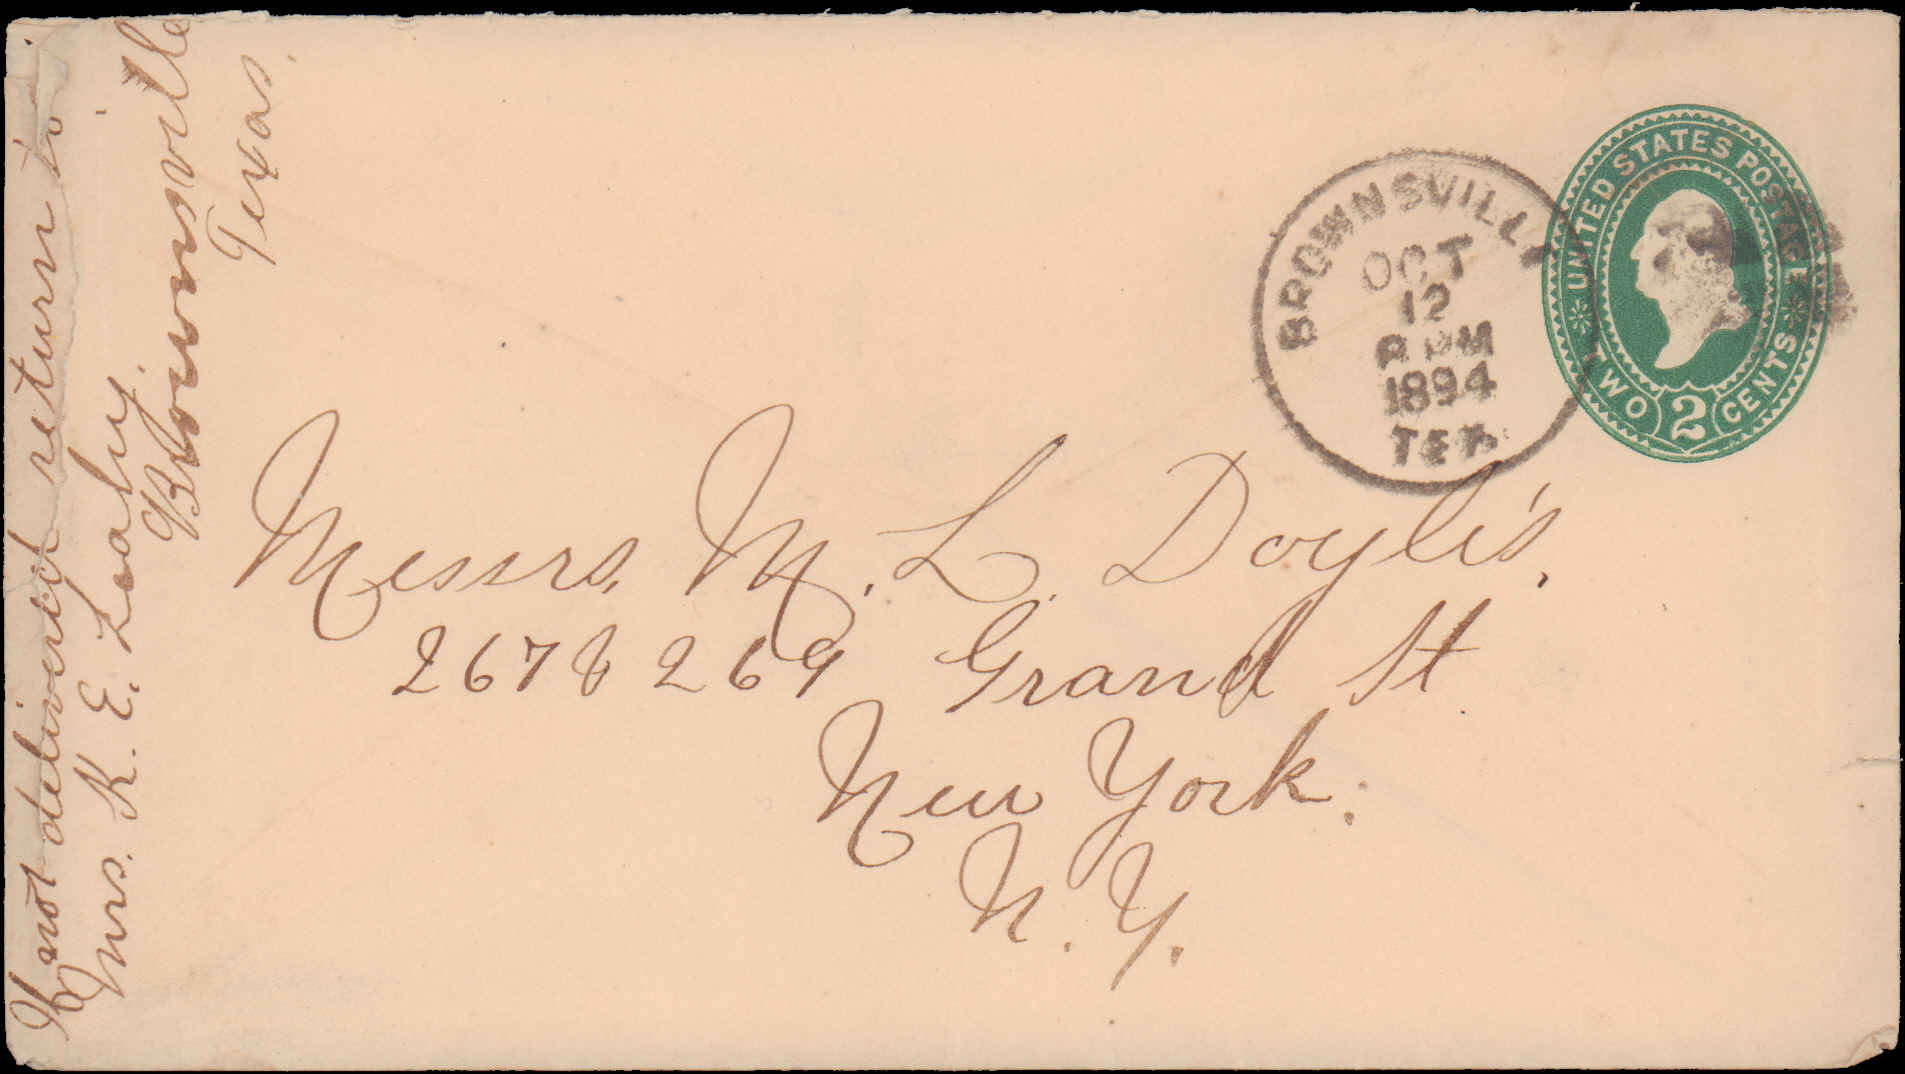 If not delivered return to
Mrs. K. E. Leahy.
Brownsville
Texas.
BROWNSVILLE
OCT
12
8 PM
1894
TEX.
UNITED STATES POSTAGE
TWO 2 CENTS
Messrs. M. L. Doyle's,
267 & 269 Grand St
New York.
N. Y.